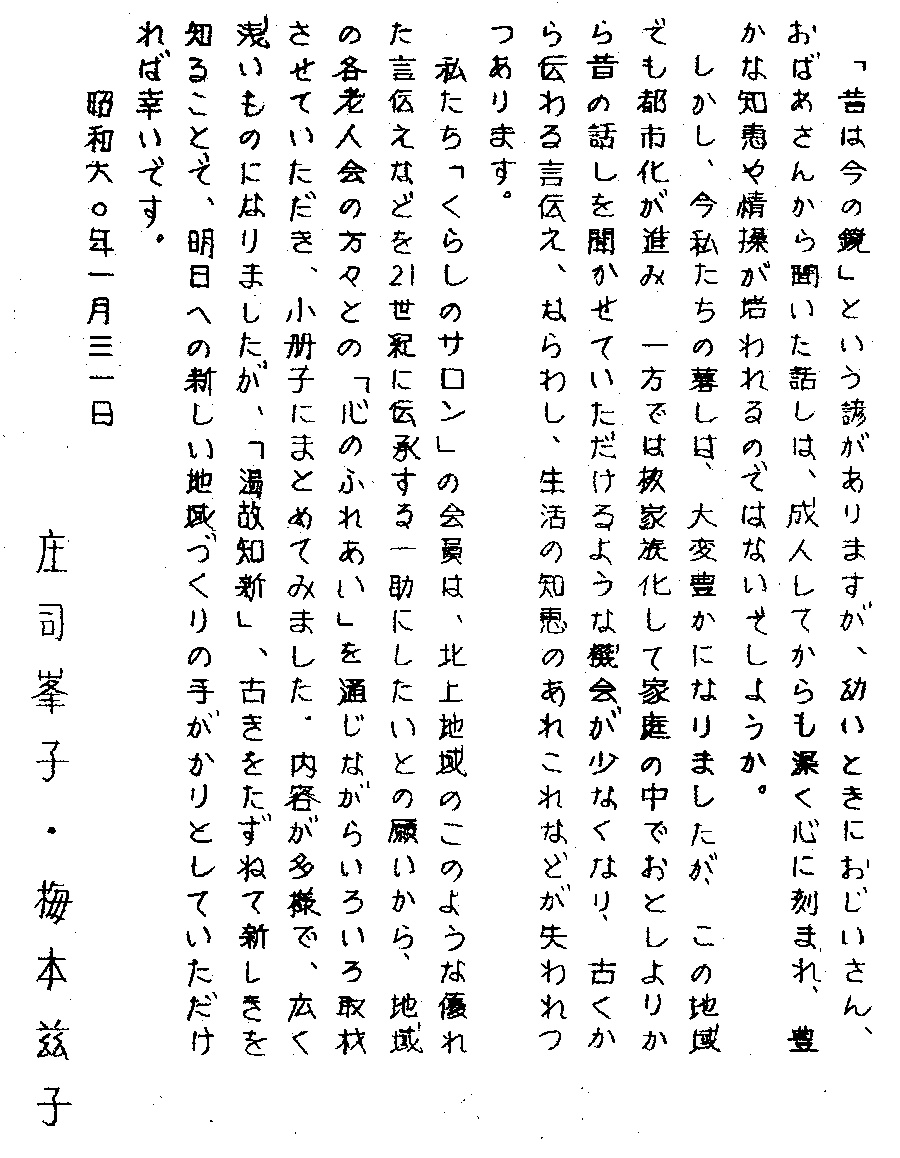 「昔は今の鏡」という諺がありますが、幼いときにおじいさん、
おばあさんから聞いた話しは、成人してからも深く心に刻まれ、豊
かな知恵や情操が培われるのではないでしようか。
しかし、今私たちの暮しは、大変豊かになりましたが、この地域
でも都市化が進み　一方では核家族化して家庭の中でおとしよりか
ら昔の話しを聞かせていただけるような機会が少なくなり、古くか
ら伝わる言伝え、ならわし、生活の知恵のあれこれなどが失われつ
つあります。
私たち「くらしのサロン」の会員は、北上地域のこのような優れ
た言伝えなどを21世紀に伝承する一助にしたいとの願いから、地域
の各老人会の方々との「心のふれあい」を通じながらいろいろ取材
させていただき、小册子にまとめてみました．内容が多様で、広く
浅いものになりましたが、「温故知新」、古きをたずねて新しきを
知ることで、明日への新しい地域づくりの手がかりとしていただけ
れば幸いです。
昭和六〇年一月三一日
庄司峯子・梅本茲子